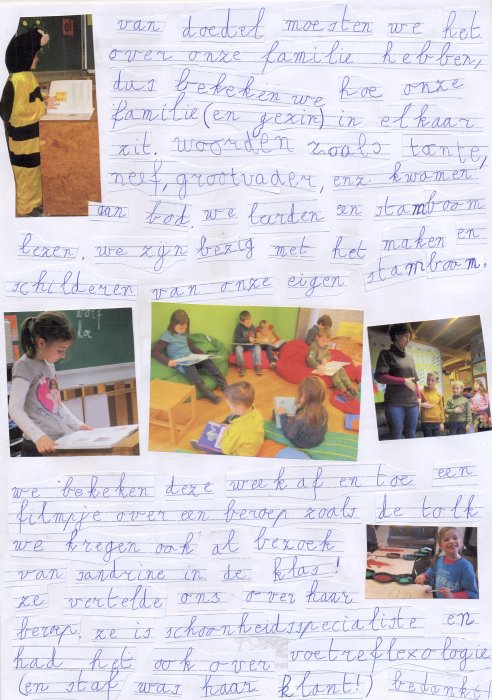 van doedel moesten we het
over onze familie hebben,
dus bekeken we hoe onze
familie (en gezin) in elkaar
zit. woorden zoals tante,
neef, grootvader, enz. kwamen
aan bod. we lerden en stamboom
lezen. we zijn bezig met het maken en
schilderen van onze eigen stamboom.
we bekeken deze week af en toe een
filmpje over een beroep zoals de tolk
we kregen ook al bezoek
van sandrine in de klas!
ze vertelde ons over haar
beroep. ze is schoonheidsspecialiste en
had het ook over voetreflexologie
(en staf was haar klant!) bedankt!